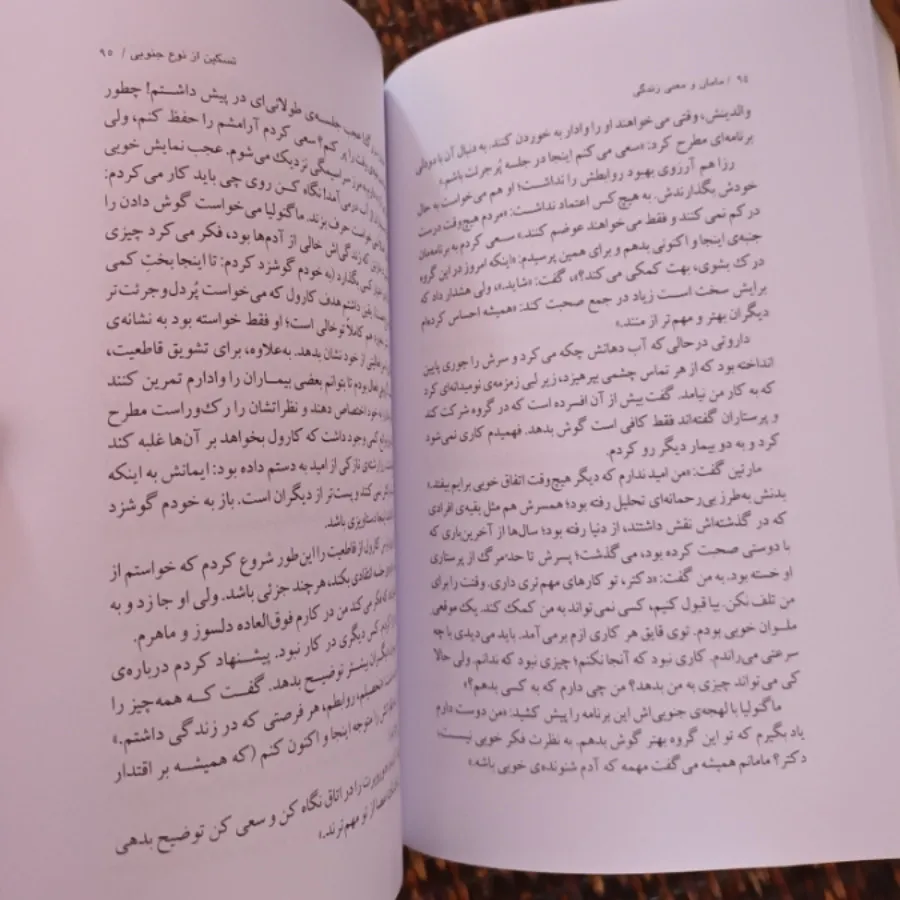 ۹٤ / مامان و معنی زندگی
والدینش، وقتی می‌خواهند او را وادار به خوردن کنند. به دنبال آن با دودلی
برنامه‌ای مطرح کرد: «سعی می‌کنم اینجا در جلسه پُرجرئت باشم.»
رزا هم آرزوی بهبود روابطش را نداشت؛ او هم می‌خواست به حال
خودش بگذارندش. به هیچ‌کس اعتماد نداشت: «مردم هیچ‌وقت درست
درکم نمی‌کنند و فقط می‌خواهند عوضم کنند.» سعی کردم به برنامه‌مان
جنبه‌ی اینجا و اکنونی بدهم و برای همین پرسیدم: «اینکه امروز در این گروه
درک بشوی، بهت کمکی می‌کند؟»، گفت: «شاید.»، ولی هشدار داد که
برایش سخت است زیاد در جمع صحبت کند: «همیشه احساس کرده‌ام
دیگران بهتر و مهم‌تر از منند.»
داروتی درحالی که آب دهانش چکه می‌کرد و سرش را جوری پایین
انداخته بود که از هر تماس چشمی بپرهیزد، زیر لبی زمزمه‌ی نومیدانه‌ای کرد
که به کار من نیامد. گفت بیش از آن افسرده است که در گروه شرکت کند
و پرستاران گفته‌اند فقط کافی است گوش بدهد. فهمیدم کاری نمی‌شود
کرد و به دو بیمار دیگر رو کردم.
مارتین گفت: «من امید ندارم که دیگر هیچ‌وقت اتفاق خوبی برایم بیفتد.»
بدنش به‌طرز بی‌رحمانه‌ای تحلیل رفته بود؛ همسرش هم مثل بقیه‌ی افرادی
که در گذشته‌اش نقش داشتند، از دنیا رفته بود؛ سال‌ها از آخرین‌باری که
با دوستی صحبت کرده بود، می‌گذشت؛ پسرش تا حد مرگ از پرستاری
او خسته بود. به من گفت: «دکتر، تو کارهای مهم‌تری داری. وقتت را برای
من تلف نکن. بیا قبول کنیم، کسی نمی‌تواند به من کمک کند. یک موقعی
ملوان خوبی بودم. توی قایق هر کاری ازم برمی‌آمد. باید می‌دیدی با چه
سرعتی می‌راندم. کاری نبود که آنجا نکنم؛ چیزی نبود که ندانم. ولی حالا
کی می‌تواند چیزی به من بدهد؟ من چی دارم که به کسی بدهم؟»
ماگنولیا با لهجه‌ی جنوبی‌اش این برنامه را پیش کشید: «من دوست دارم
یاد بگیرم که تو این گروه بهتر گوش بدهم. به نظرت فکر خوبی نیست،
دکتر؟ مامانم همیشه می‌گفت مهمه که آدم شنونده‌ی خوبی باشه.»
تسکین از نوع جنوبی / ۹۵
عجب جلسه‌ی طولانی‌ای در پیش داشتم! چطور
وقت را پر کنم؟ سعی کردم آرامشم را حفظ کنم، ولی
به مرز سراسیمگی نزدیک می‌شوم. عجب نمایش خوبی
از آب درمی‌آمد! نگاه کن روی چی باید کار می‌کردم:
حرف بزند. ماگنولیا می‌خواست گوش دادن را
که زندگی‌اش خالی از آدم‌ها بود، فکر می‌کرد چیزی
کسی بگذارد (به خودم گوشزد کردم: تا اینجا بختِ کمی
یقین داشتم هدف کارول که می‌خواست پُردل‌و‌جرئت‌تر
هم کاملاً توخالی است؛ او فقط خواسته بود به نشانه‌ی
از خود نشان بدهد. به‌علاوه، برای تشویق قاطعیت،
فعال بودم تا بتوانم بعضی بیماران را وادارم تمرین کنند
به خود اختصاص دهند و نظراتشان را رک‌وراست مطرح
کمی وجود داشت که کارول بخواهد بر آن‌ها غلبه کند
نازکی از امید به دستم داده بود: ایمانش به اینکه
می‌کند و پست‌تر از دیگران است. باز به خودم گوشزد
دستاویزی باشد.
کارول از قاطعیت را این‌طور شروع کردم که خواستم از
جلسه انتقادی بکند، هرچند جزئی باشد. ولی او جا زد و به
که فکر می‌کند من در کارم فوق‌العاده دلسوز و ماهرم.
کس دیگری در کار نبود. پیشنهاد کردم درباره‌ی
دیگران بیشتر توضیح بدهد. گفت که همه‌چیز را
تحصیلم، روابطم، هر فرصتی که در زندگی داشتم.»
را متوجه اینجا و اکنون کنم (که همیشه بر اقتدار
را در اتاق نگاه کن و سعی کن توضیح بدهی
از تو مهم‌ترند.»